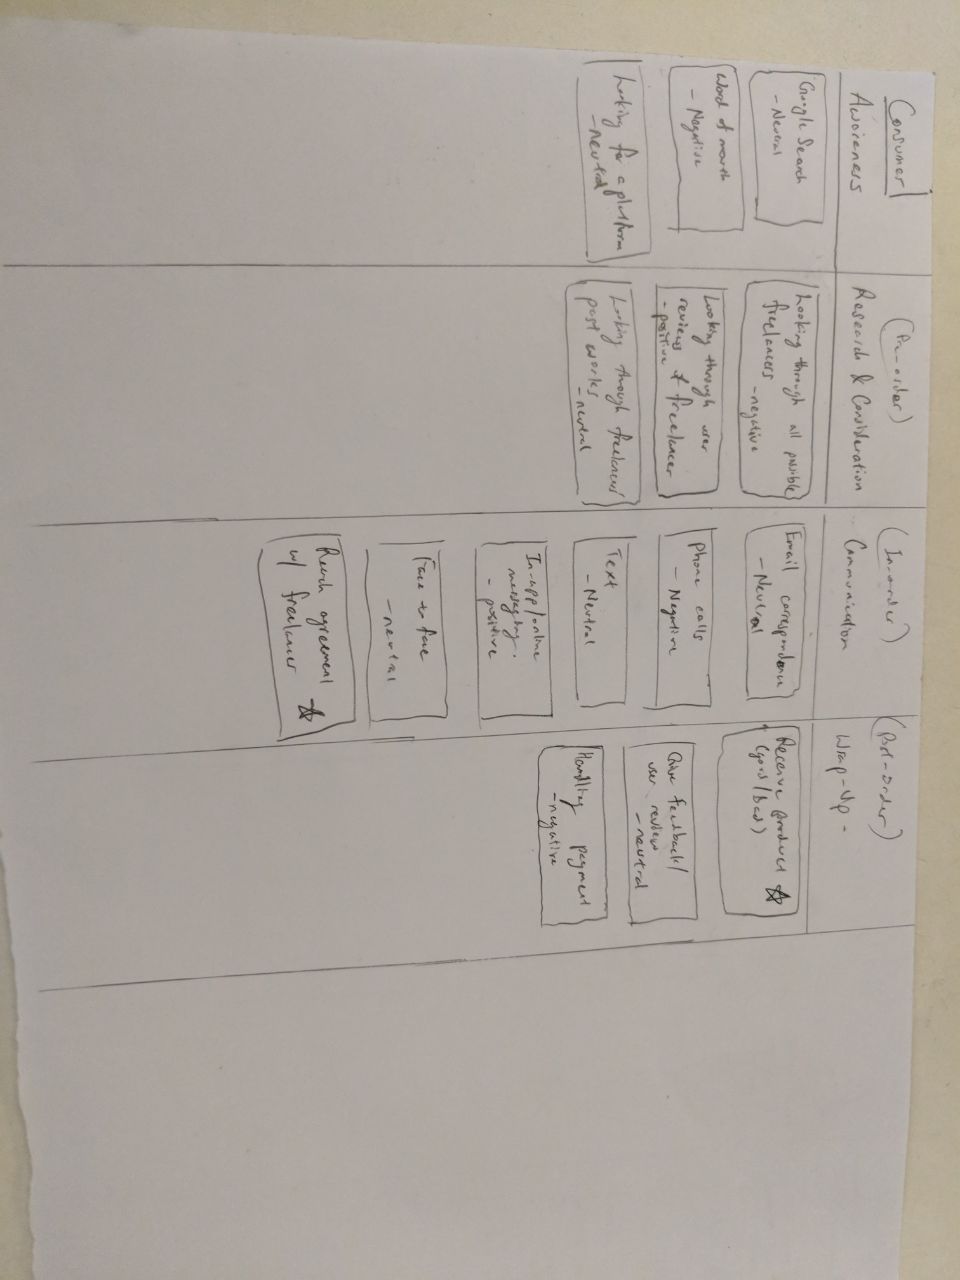 Consumer
Awareness
Google Search
- Neutral
Word of mouth
- Negative
Looking for a platform
- neutral
(Pre-order)
Research & Consideration
Looking through all possible
freelancers
- negative
Looking through user
reviews of freelancer
- positive
Looking through freelancers'
past works
- neutral
(In-order)
Communication
Email correspondence
- Neutral
Phone calls
- Negative
Text
- Neutral
In-app/online
messaging.
- positive
Face to face
- neutral
Reach agreement
w/ freelancer
(Post-Order)
Wrap-Up -
Receive product
(good/bad)
Give feedback/
user review
- neutral
Handling payment
- negative